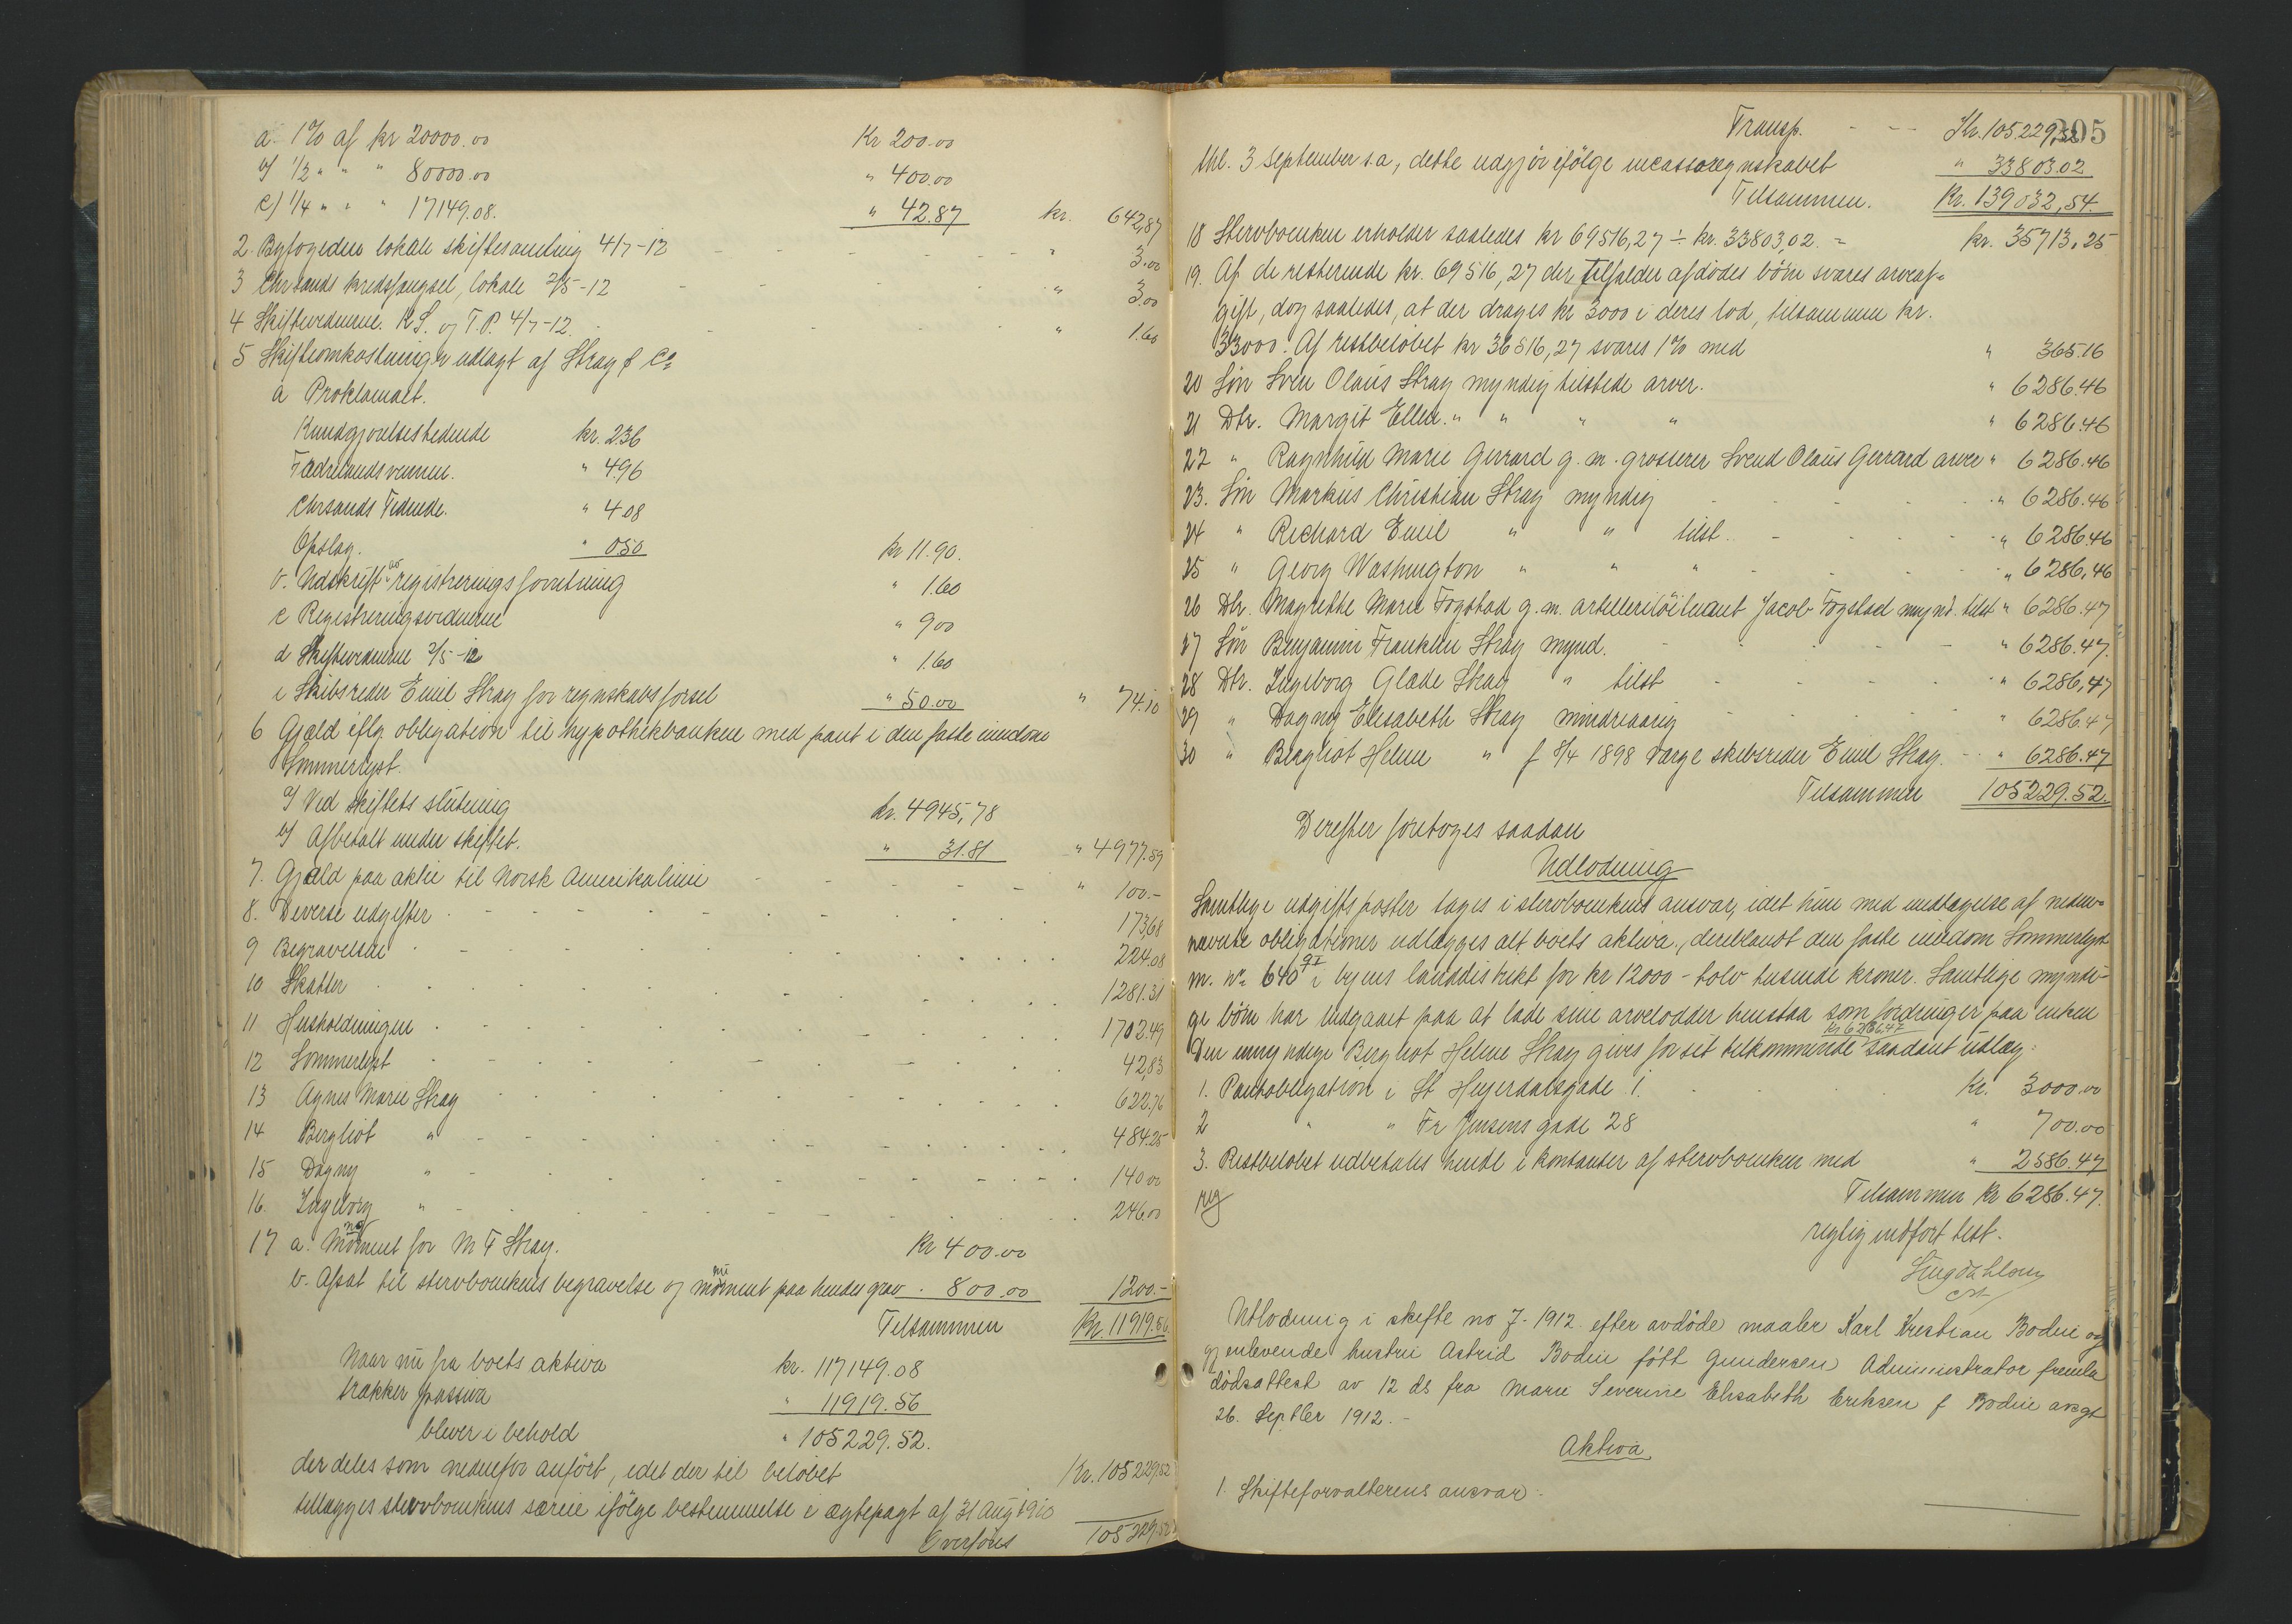 a. 1% af kr 20000.00 Kr 200.00
b) 1/2 " " " 80000.00 " 400.00
c) 1/4 " " " 17149.08. " 42.87 kr. 642,87
2. Byfogedens lokale skiftesamling 4/7-12 " 3.00
3 Chrsands kredsfængsel, lokale 2/5-12 " 3.00
4 Skiftevidnerne K.S. og T.P. 4/7-12. " 1.60
5 Skifteomkostninger udlagt af Stray & Co
a Proklamalt.
Kundgjørelsestidende kr. 2.36
Fædrelandsvennen. " 4.96
Chrsands Tidende. " 4 08
Opslag. " 0.50 kr 11.90.
b. Udskrift av registreringsforretning " 1.60
c Registreringsvidnerne " 9 00
d Skiftevidnerne 2/5-12 " 1.60
e Skibsreder Emil Stray for regnskabsførsel " 50.00 " 74.10
6 Gjæld iflg. obligation til hypothekbanken med pant i den faste eiendom
Sommerlyst.
a) Ved skiftets slutning kr. 4945,78
b) Afbetalt under skiftet. " 31.81 " 4977.59
7. Gjæld paa aktie til Norsk Amerikalinie " 100.-
8. Diverse udgifter 173,68
9 Begravelsen 224.08
10 Skatter 1281.31
11 Husholdningen 1702.49
12 Sommerlyst 42,83
13 Agnes Marie Stray 622.76
14 Bergliot " 484.25
15 Dagny " 140 00
16. Ingeborg " 246.00
17 a. Monument for M F Stray. Kr 400.00
b. Afsat til stervboenkens begravelse og monument paa hendes grav . 800.00 1200.-
Tilsammen Kr 11919.56
Naar nu fra boets aktiva kr. 117149.08
trækker passiva " 11919.56
bliver i behold " 105229.52.
der deles som nedenfor anført, idet der til beløbet Kr. 105229,52
tillægges stervboenkens særeie ifølge bestemmelse i ægtepagt af 31 Aug 1910
Overføres 105229.52
Transp. - - - Kr. 105229,52 305
thl. 3 September s.a., dette udgjør ifølge incassoregnskabet " 33803.02
Tilsammen. Kr. 139032,54.
18 Stervboenken erholder saaledes kr 69516,27 ÷ kr. 33803,02. = kr. 35713.25
19. Af de resterende kr. 69516,27 der tilfalder afdødes børn svares arveaf-
gift, dog saaledes, at der drages kr 3000 i deres lod, tilsammen kr.
33000. Af restbeløbet kr 36516,27 svares 1% med " 365.16
20 Søn Sven Olaus Stray myndig tilstede arver. " 6286.46
21 Dtr. Margit Ellen " " " " " 6286.46
22 " Ragnhild Marie Gerrard g.m. grosserer Svend Olaus Gerrard arver " 6286.46
23. Søn Markus Christian Stray myndig " 6286.46
24 " Richard Emil " " tilst. " 6286.46
25 " Georg Washington " " " " 6286.46
26 Dtr. Magrethe Marie Fogstad g.m. artilleriløitnant Jacob Fogstad mynd. tilst " 6286.47
27 Søn Benjamin Franklin Stray mynd. " 6286.47.
28 Dtr. Ingeborg Glæde Stray " tilst " 6286,47
29 " Dagny Elisabeth Stray mindreaarig " 6286.47
30 " Bergliot Helene " f 8/4 1898 Værge skibsreder Emil Stray. " 6286.47
Tilsammen 105229.52.
Derefter foretoges saadan
Udlodning
Samtlige udgiftsposter tages i stervboenkens ansvar, idet hun med undtagelse af neden-
nævnte obligationer udlægges alt boets aktiva, deriblandt den faste eiendom Sommerlyst
m. no 640 i byens landdistrikt for kr 12000 - tolv tusinde kroner. Samtlige myndi-
ge børn har indgaaet paa at lade sine arvelodder henstaa som fordringer paa enken
Den umyndige Bergliot Helene Stray gives for sit tilkommende kr 6286,47 saadant udlæg:
1. Pantobligation i St Heyerdalsgade 1. Kr. 3000.00
2 " " Fr Jensens gade 28 " 700.00
3. Restbeløbet udbetales hende i kontanter af stervboenken med " 2586.47
Tilsammen kr 6286.47.
rigtig indført test.
Utlodning i skifte no 7- 1912 efter avdøde maaler Karl Kristian Bodin og
gjenlevende hustru Astrid Bodin født Gundersen Administrator fremla
dødsattest av 12 ds fra Marie Severine Elisabeth Eriksen f Bodin avgt
26. Septber 1912.-
Aktiva
1. Skifteforvalterens ansvar